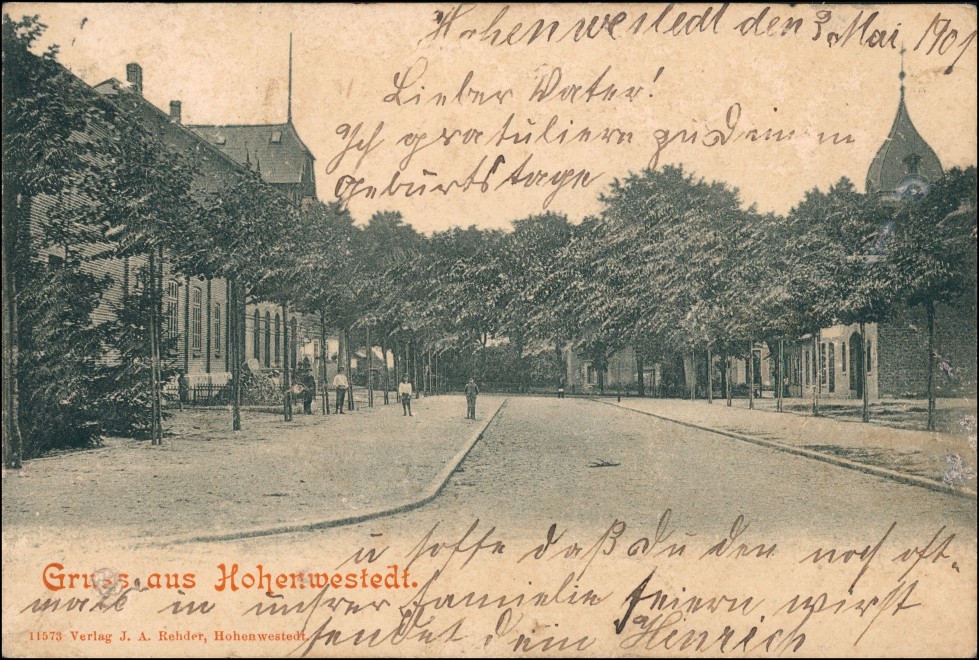 Hohenwestedt den 3. Mai 1901
Lieber Vater!
Ich gratuliere zu Deinem
Geburtstage
u hoffe daß Du den noch oft-
Gruss aus Hohenwestedt.
male in unsrer Familie feiern wirst
11573 Verlag J. A. Rehder, Hohenwestedt.
sendet dein Heinrich